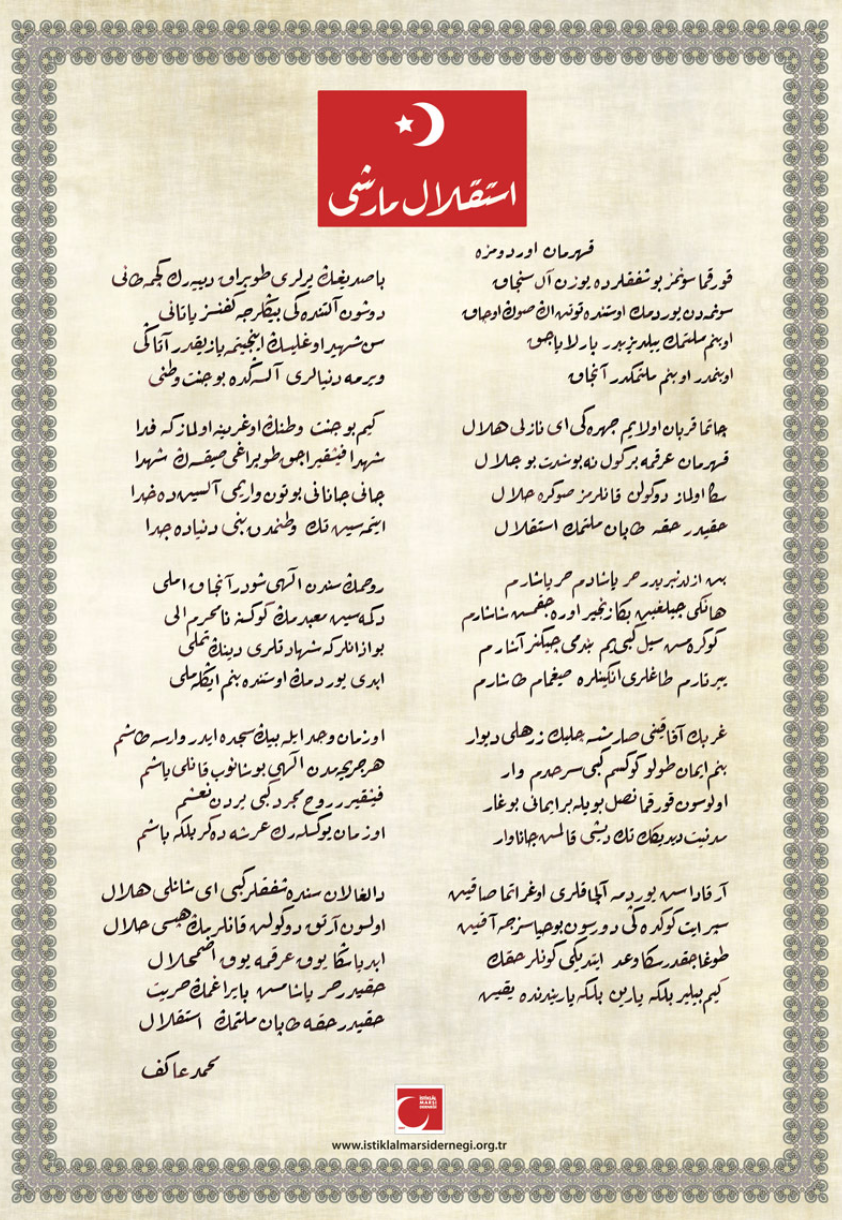 استقلال مارشی
قهرمان اوردومزه
قورقما سونمز بو شفقلرده یوزن آل سنجاق
سونمدن یوردمك اوستنده توتن اڭ صوڭ اوجاق
او بنم ملتمك ییلدیزیدر پارلایاجق
او بنمدر او بنم ملتمكدر آنجاق
چاتما قربان اولایم چهره ڭی ای نازلی هلال
قهرمان عرقمه بر گول نه بو شدت بو جلال
سڭا اولماز دوكولن قانلرمز صوكره حلال
حقیدر حقه طاپان ملتمك استقلال
بن ازلدنبریدر حر یاشادم حر یاشارم
هانكی چیلغین بڭا زنجیر اوره جقمس شاشارم
كوكره مس سیل كبی یم بندمی چیكنر آشارم
ییرتارم طاغلری انكینلره صیغمام طاشارم
غربك آفاقنی صارمسه چلیك زرهلی دیوار
بنم ایمان طولو كوكسم كبی سرحدم وار
اولوسون قورقما نصل بویله بر ایمانی بوغار
مدنیت دیدیكك تك دیشی قالمس جاناوار
آرقاداس یوردمه آلچاقلری اوغراتما صاقین
سپر ایت كوكده ڭی دورسون بو حیاسزجه آقین
طوغاجقدر سڭا وعد ایتدیكی كونلر حقك
كیم بیلیر بلكه یارین بلكه یاریندنده یقین
باصدیغڭ یرلری طوپراق دییه رك كچمه طانی
دوشون آلتنده كی بیڭلرجه كفنسز یاتانی
سن شهید اوغلیسڭ اینجیتمه یازیقدر آتاڭی
ویرمه دنیالری آلسه ڭده بو جنت وطنی
كیم بو جنت وطنڭ اوغرینه اولماز كه فدا
شهدا فیشقیراجق طوپراغی صیقسه ڭ شهدا
جانی جانانی بوتون واریمی آلسین ده خدا
ایتمه سین تك وطنمدن بنی دنیاده جدا
روحمك سندن الهی شودر آنجاق املی
دكمه سین معبدمك كوكسنه نامحرم الی
بو اذانلر كه شهادتلری دینك تملی
ابدی یوردمك اوستنده بنم ایڭله ملی
او زمان وجد ایله بیڭ سجده ایدر وارسه طاشم
هر جریحه مدن الهی بوشانوب قانلی یاشم
فیشقیرر روح مجرد كبی یردن نعشم
او زمان یوكسله رك عرشه دكر بلكه باشم
دالغالان سنده شفقلر كبی ای شانلی هلال
اولسون آرتق دوكولن قانلرمك هپسی حلال
ابدیا سڭا یوق عرقمه یوق اضمحلال
حقیدر حر یاشامس بایراغمك حریت
حقیدر حقه طاپان ملتمك استقلال
محمد عاكف
İSTİKLÂL
MARŞI
DERNEĞİ
www.istiklalmarsidernegi.org.tr